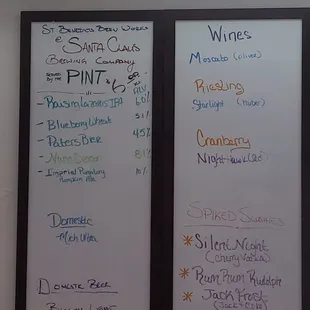 St. Benedict's Brew Works
&
Santa Claus
Brewing Company
served by the PINT $6.50
ABV
- Raising Lazarus IPA 6.0%
- Blueberry Wheat 5.1%
- Paters Bier 4.5%
- 8.1%
- Imperial Purgatory 10%
Pumpkin Ale
Domestic
Mich Ultra
Domestic Beer
Light
Wines
Moscato (Oliver)
Riesling
Starlight (Huber)
Cranberry
Night Hawk (Red)
Spiked Slushies
* Silent Night
(Cherry Vodka)
* Rum Rum Rudolph
* Jack Frost
(Jack & Coke)